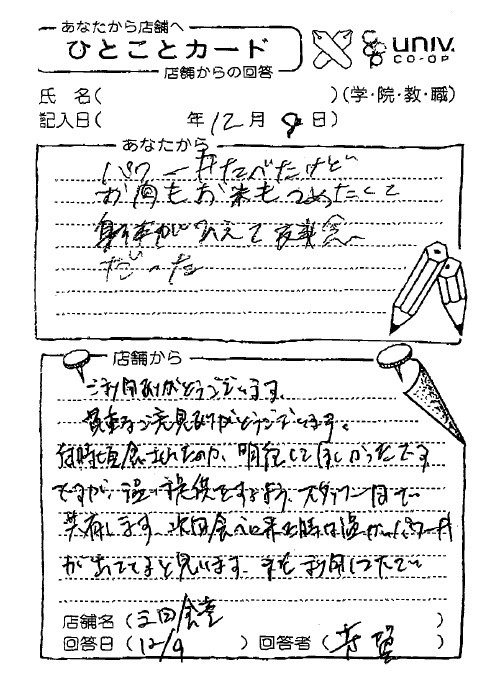 あなたから店舗へ
ひとことカード
店舗からの回答
univ.
CO-OP
氏 名( )(学・院・教・職)
記入日( 年12月9日)
あなたから
パワー丼たべたけど
お肉もお米もつめたくて
身体がひえて残念
だった
店舗から
ご利用ありがとうございます。
貴重なご意見ありがとうございます。
何時頃食されたのか、明記して ほしかったです
ですが、温い提供をするよう、スタッフ一同で
共有します。次回食べに来る時は温かいパワー丼
が出てくると思います。またご利用して下さい
店舗名(三田食堂 )
回答日(12/9 )回答者( )